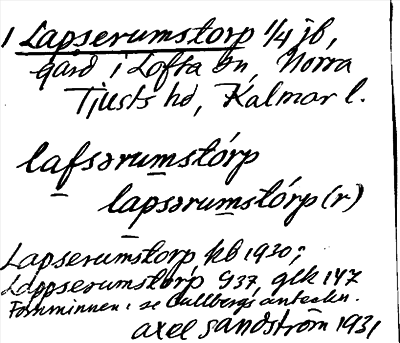 1 Lapserumstorp 1/4 jb,
gård i Lofta sn, Norra
Tjusts hd, Kalmar l.
lafsərumstórp
lapsərumstórp (r)
Lapserumstorp kb 1930;
Lappserumstorp G 37, glk 147
Fornminnen: se Cullbergs anteckn.
Axel Sandström 1931